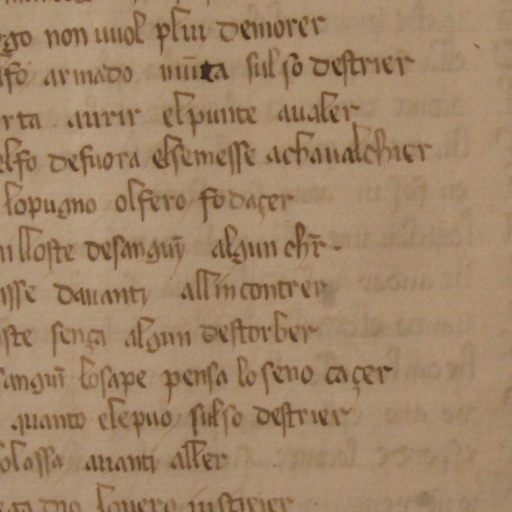 go non uuol pluı demorer
lfo armado mūta sul so destrier
rta aurir el punte aualer
elfo de fuora el se messe a chaualchier
lo pugno ol fero fo daçer
ui lloste de sanguȳ algun chr̄.
asse dauanty all incontrer
oste sença algun destorber
sanguī lo sape pensa lo seno taçer
quanto ele puo sul so destrier
lassa auanti aller
dio lo uero iustixier